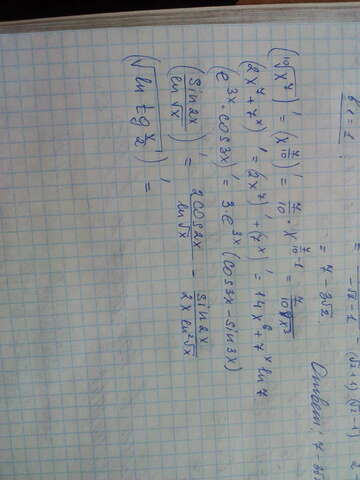 61 = 1.
= -√2-1
= 7-3√2.
Ответ: 7-3√2
(¹⁰√x⁷)' = (x^(7/10))' = 7/10 · x^(7/10 - 1) = 7/(10 ¹⁰√x³)
(2x⁷+7ˣ)' = (2x⁷)' + (7ˣ)' = 14x⁶+7ˣ ln 7
(e³ˣ·cos3x)' = 3e³ˣ(cos3x-sin3x)
(sin2x / ln√x)' = 2cos2x / ln√x - sin2x / 2x ln²√x
(√(ln tg x/2))' =